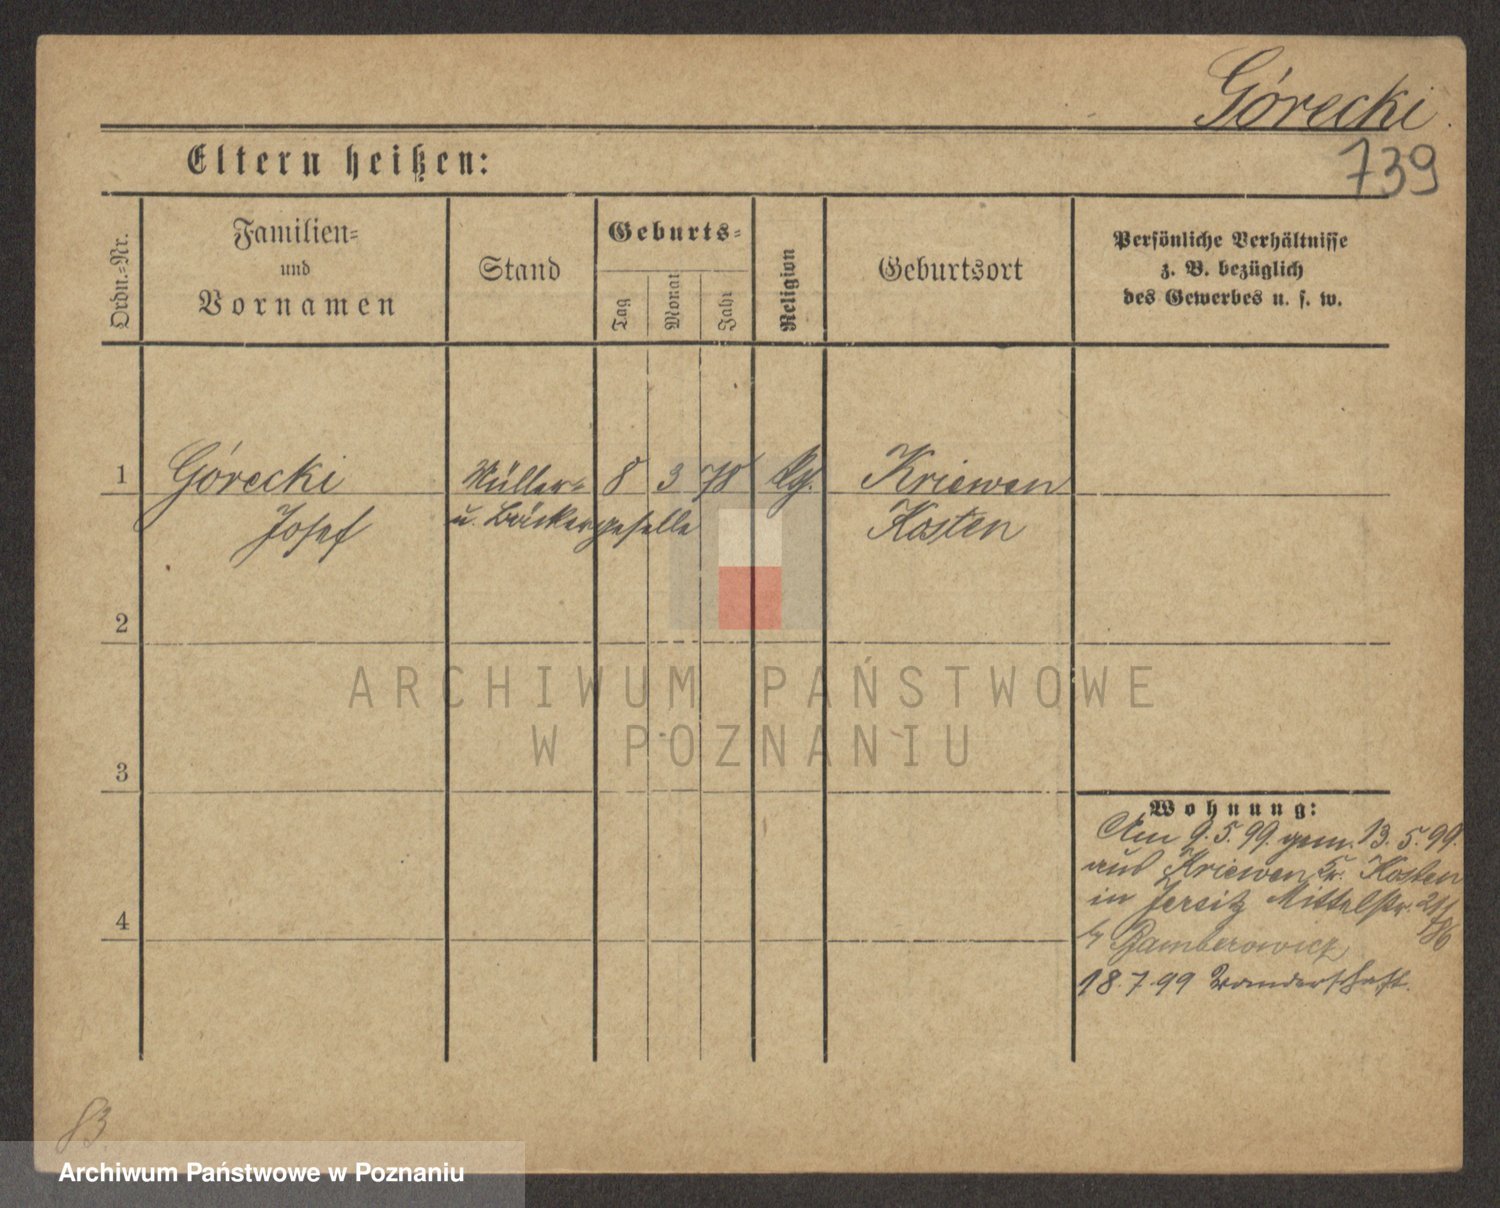 Górecki
739
Eltern heißen:
Ordn.-Nr.
Familien-
und
Vornamen
Stand
Geburts-
Tag
Monat
Jahr
Religion
Geburtsort
Persönliche Verhältnisse
z. B. bezüglich
des Gewerbes u. s. w.
1
Górecki
Müller-
8
3
78
Kriewen
Josef
u. Bäckergeselle
Kosten
2
ARCHIWUM PAŃSTWOWE
W POZNANIU
3
Wohnung:
Am 9.5.99. gem. 13.5.99.
aus Kriewen Kr. Kosten
in Jersitz Mittelstr.
4
18.7.99 Wanderschaft.
83
Archiwum Państwowe w Poznaniu